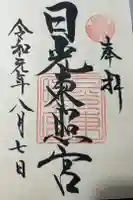 奉拝
日光東照宮
令和元年八月七日